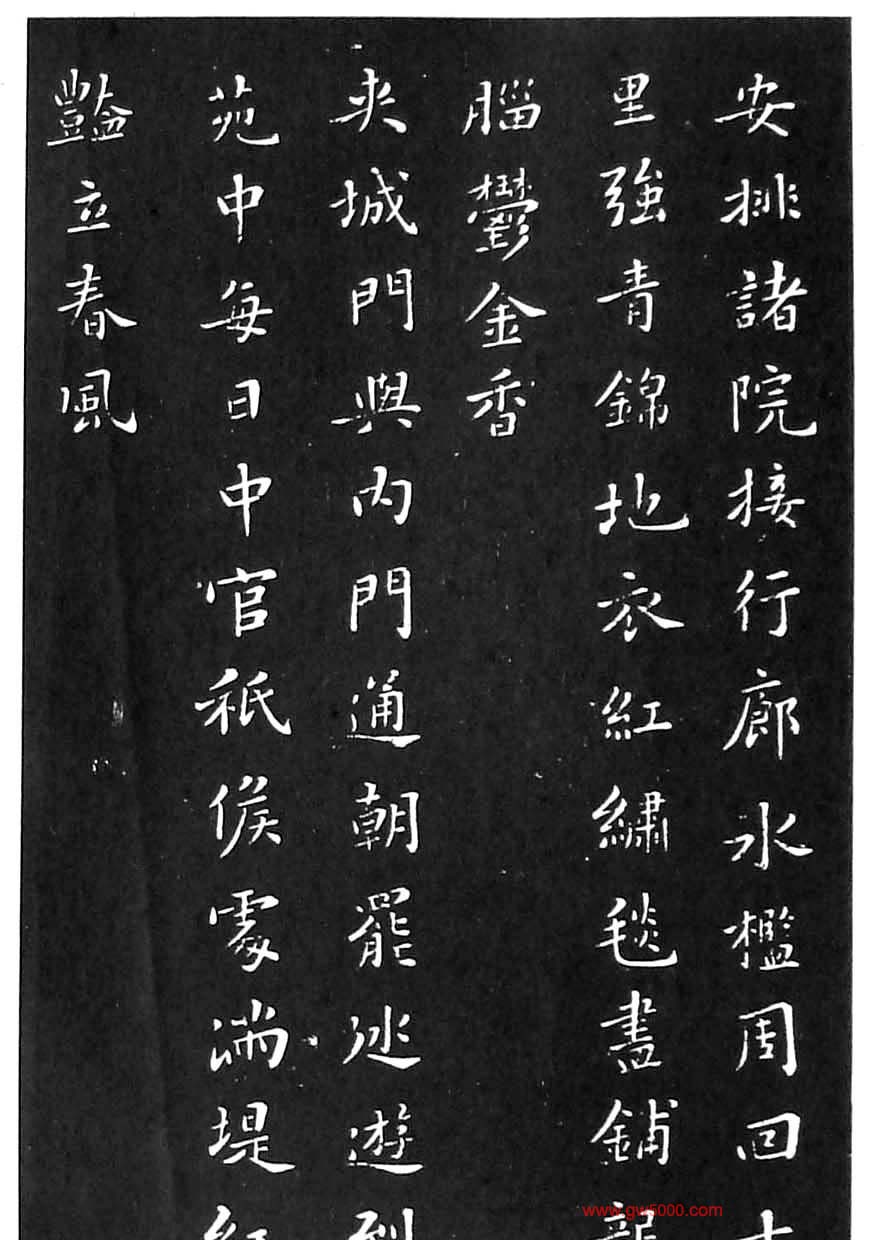 安排諸院接行廊水檻周回十
里強青錦地衣紅繡毯盡鋪龍
腦鬱金香
夾城門與内門通朝罷巡遊到
苑中每日中官秖候處滿堤紅
豔立春風
www.gw5000.com